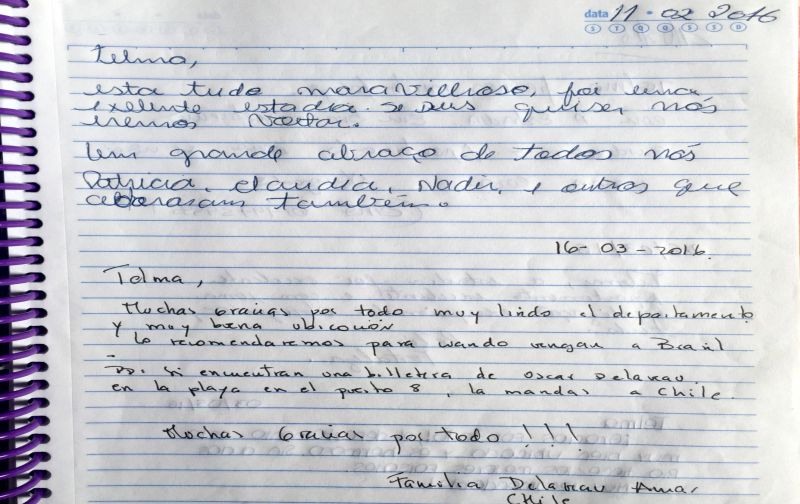 data 11 - 02 2016
S T Q Q S S D
Telma,
esta tudo maravilhoso, foi uma
exelente estadia. se Deus quiser nós
iremos voltar.
Um grande abraço de todos nós
Patricia, Claudia, Nadir, e outros que
adoraram também.
16- 03 - 2016.
Telma,
Muchas Gracias por todo muy lindo el departamento
y muy buena ubicación
lo recomendaremos para cuando vengan a Brasil
PD. Si encuentran una billetera de Oscar Delaveau
en la playa en el puesto 8, la mandas a Chile.
Muchas Gracias por todo !!!
Familia Delaveau Amar
Chile